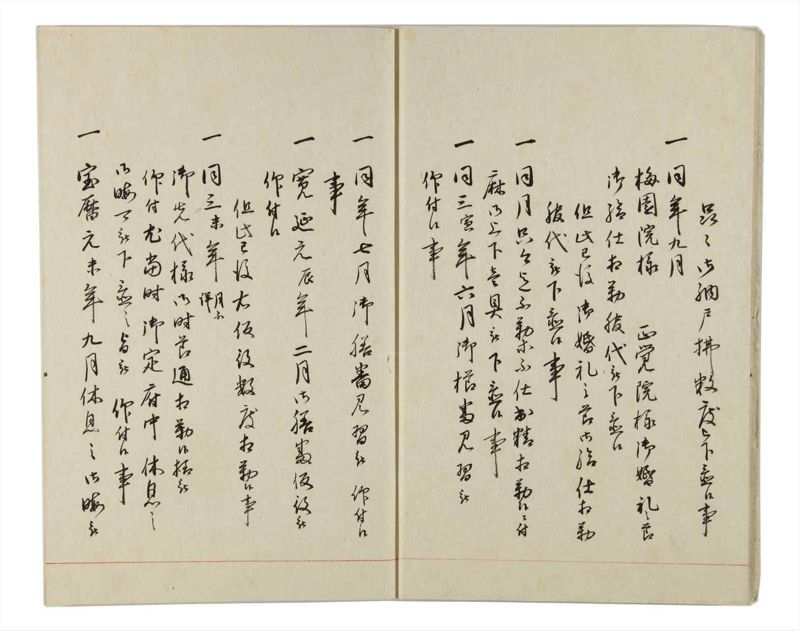 御納戸拂数度被下置候事
一 同年九月
梅園院様 正覚院様御婚礼之節
御給仕相勤 代被下置候
但此已後御婚礼之節御給仕相勤
代被下置候事
一 同月 不勤 不仕出精相勤候ニ付
麻御上下壱具被下置候事
一 同三寅年六月御 番見習被
仰付候事
一 同年七月御膳番見習被 仰付候
事
一 寛延元辰年二月御膳番仮役被
仰付候
但此已後右仮役数度相勤候事
一 同三未年 月不詳
御先代様御時節通相勤候様被
仰付尤当時御定府中休息之
御暇可被下置之旨被 仰付候事
一 宝暦元未年九月休息之御暇被